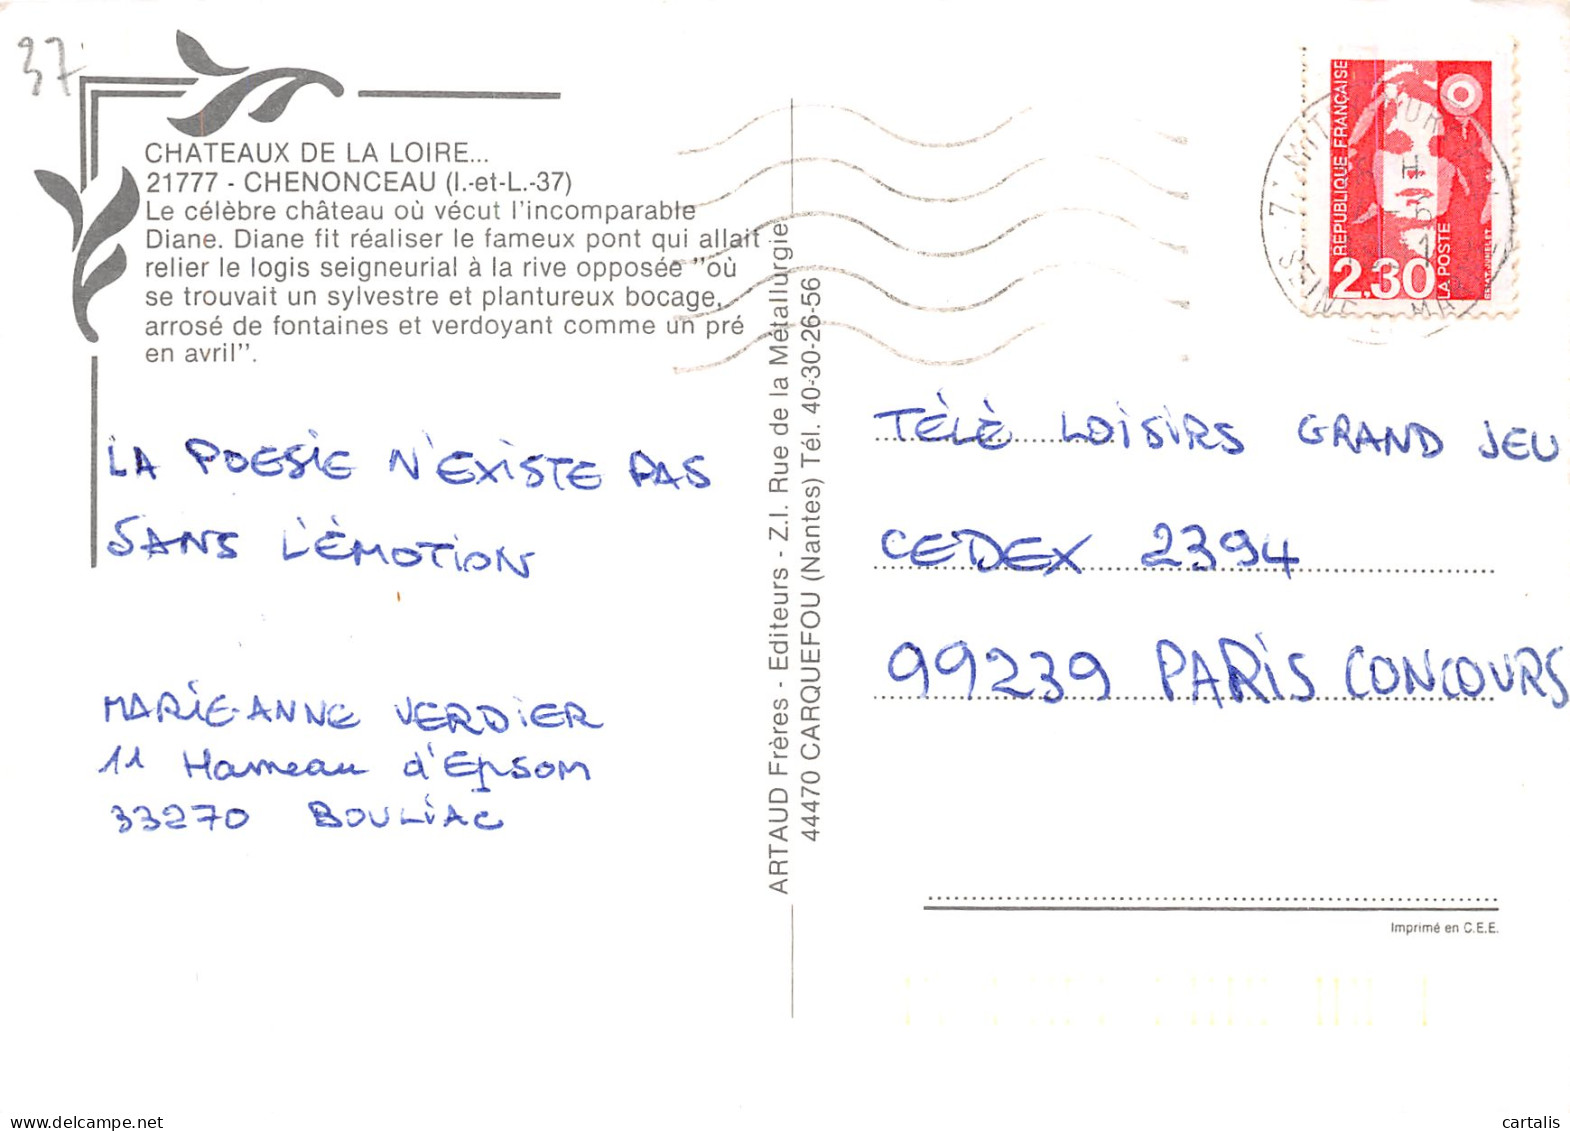 37
CHATEAUX DE LA LOIRE...
21777 - CHENONCEAU (I.-et-L.-37)
Le célèbre château où vécut l'incomparable
Diane. Diane fit réaliser le fameux pont qui allait
relier le logis seigneurial à la rive opposée "où
se trouvait un sylvestre et plantureux bocage,
arrosé de fontaines et verdoyant comme un pré
en avril".
LA POESIE N'EXISTE PAS
SANS L'ÉMOTION
MARIE-ANNE VERDIER
11 Hameau d'Epsom
33270 BOULIAC
ARTAUD Frères - Editeurs - Z.I. Rue de la Métallurgie
44470 CARQUEFOU (Nantes) Tél. 40-30-26-56
REPUBLIQUE FRANÇAISE
2,30
LA POSTE
SEINE ET MARNE
TÈLÈ LOISIRS GRAND JEU
CEDEX 2394
99239 PARIS CONCOURS
Imprimé en C.E.E.
cartalis